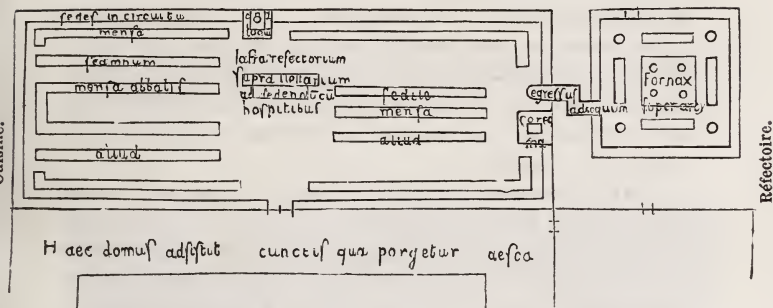 sedes in circuitu
mensa
scamnum
mensa abbatis
aliud
Infra refectorium
supra uestiarium
ad sedendū cū
hospitibus
sedile
mensa
aliud
egressus
ad coquinam
Fornax
super arcus
Haec domus adsistit cunctis qua porgetur aesca
Cuisine.
Réfectoire.